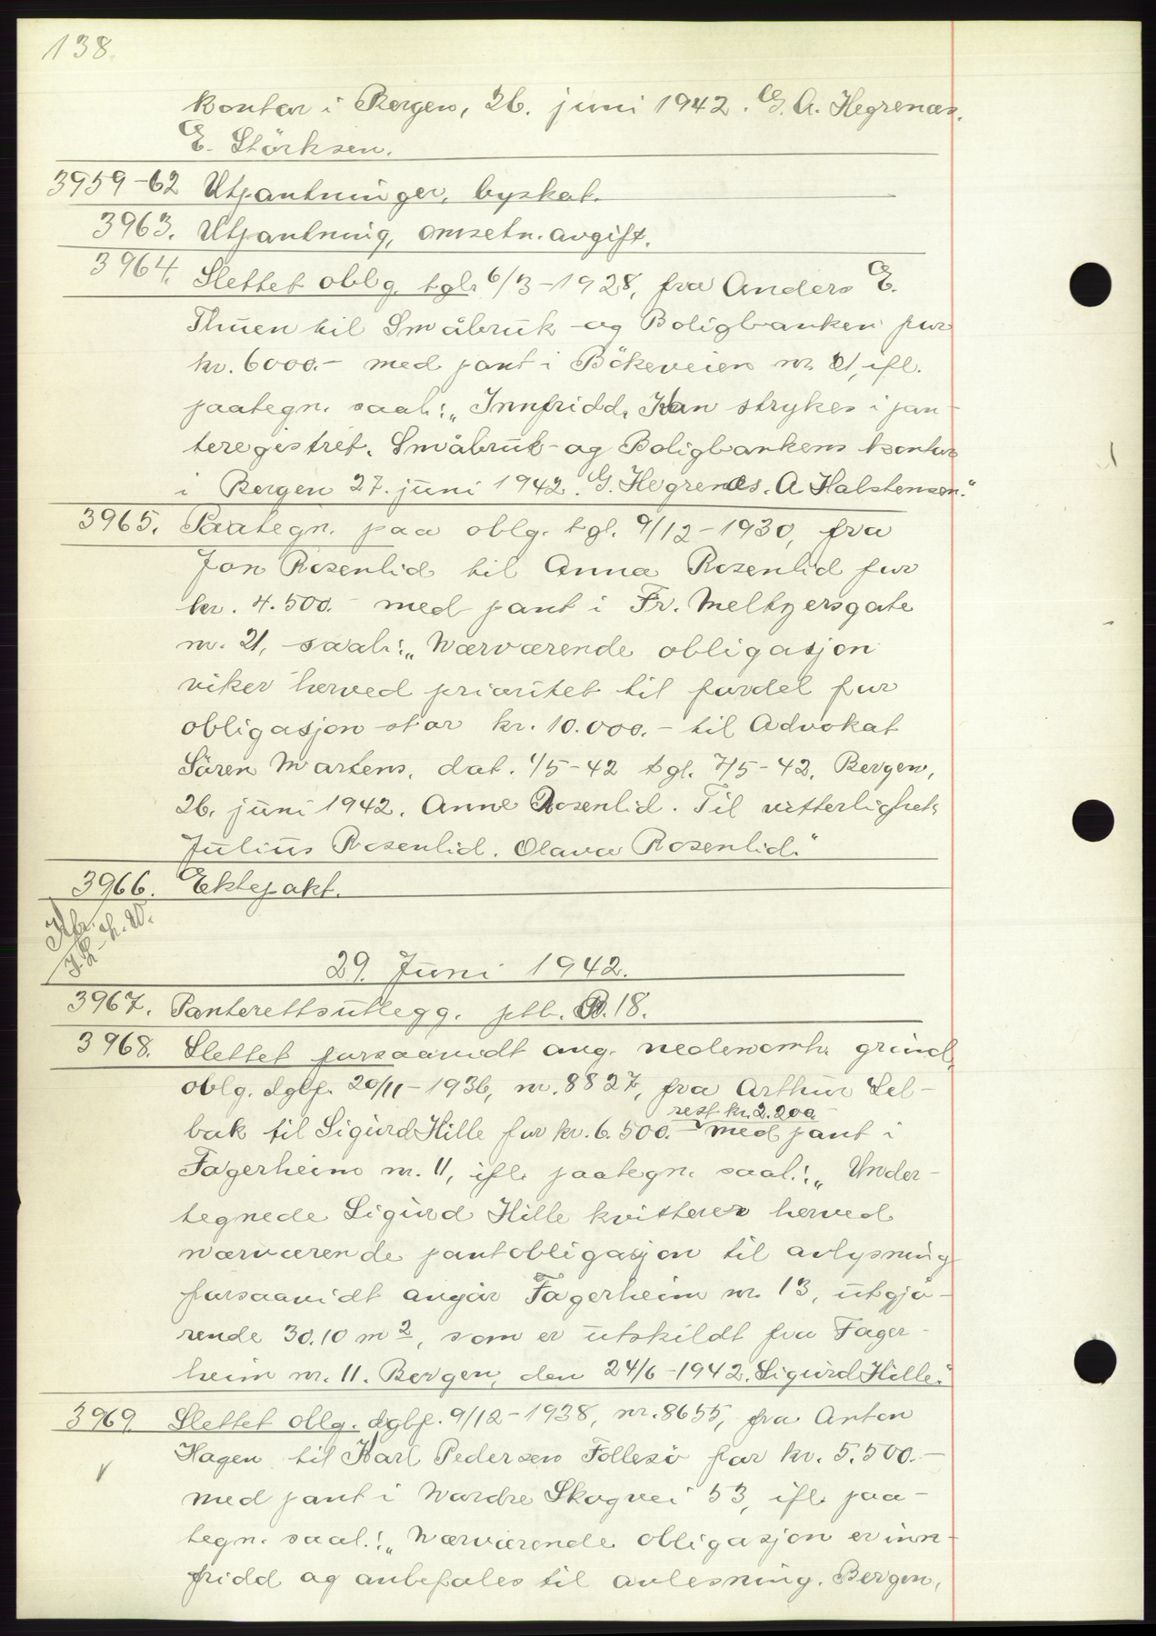 138.
kontor i Bergen, 26. juni 1942. G. A. Hegrenæs.
E. Störksen.
3959-62 Utpantninger, byskat.
3963. Utpantning, omsetn. avgift.
3964. Slettet oblg. tgl. 6/3-1928, fra Anders E.
Thuen til Småbruk- og Boligbanken for
kr. 6000.- med pant i Bökeveien nr. 21, ifl.
paategn. saal.: „Innfridd. Kan strykes i pan-
teregistret. Småbruk- og Boligbankens kontor
i Bergen 27. juni 1942. G. Hegrenæs. A Halstensen."
3965. Paategn. paa oblg. tgl. 9/12-1930, fra
Jon Rosenlid til Anna Rosenlid for
kr. 4.500.- med pant i Fr. Meltzersgate
nr. 21, saal.: „Nærværende obligasjon
viker herved prioritet til fordel for
obligasjon stor kr. 10.000.- til Advokat
Sören Martens, dat. 1/5-42 tgl. 7/5-42. Bergen,
26. juni 1942. Anne Rosenlid. Til vitterlighet:
Julius Rosenlid. Olava Rosenlid."
3966. Ektepakt.
29. Juni 1942.
3967. Panterettsutlegg. ptb. B. 18.
3968. Slettet forsaavidt ang. nedenomh. grund,
oblg. dgbf. 20/11-1936, nr. 8827, fra Arthur Sel-
rest kr. 2.200
bak til Sigurd Hille for kr. 6.500.- med pant i
Fagerheim nr. 11, ifl. paategn. saal.: „Under-
tegnede Sigurd Hille kvitterer herved
nærværende pantobligasjon til avlysning
forsaavidt angår Fagerheim nr. 13, utgjö-
rende 30.10 m2, som er utskildt fra Fager-
heim nr. 11. Bergen, den 24/6-1942. Sigurd Hille."
3969. Slettet oblg. dgbf. 9/12-1938, nr. 8655, fra Anton
Hagen til Karl Pedersen Follesö for kr. 5.500.-
med pant i Nordre Skogvei 53, ifl. paa-
tegn. saal.: „Nærværende obligasjon er inn-
fridd og anbefales til avlesning. Bergen,